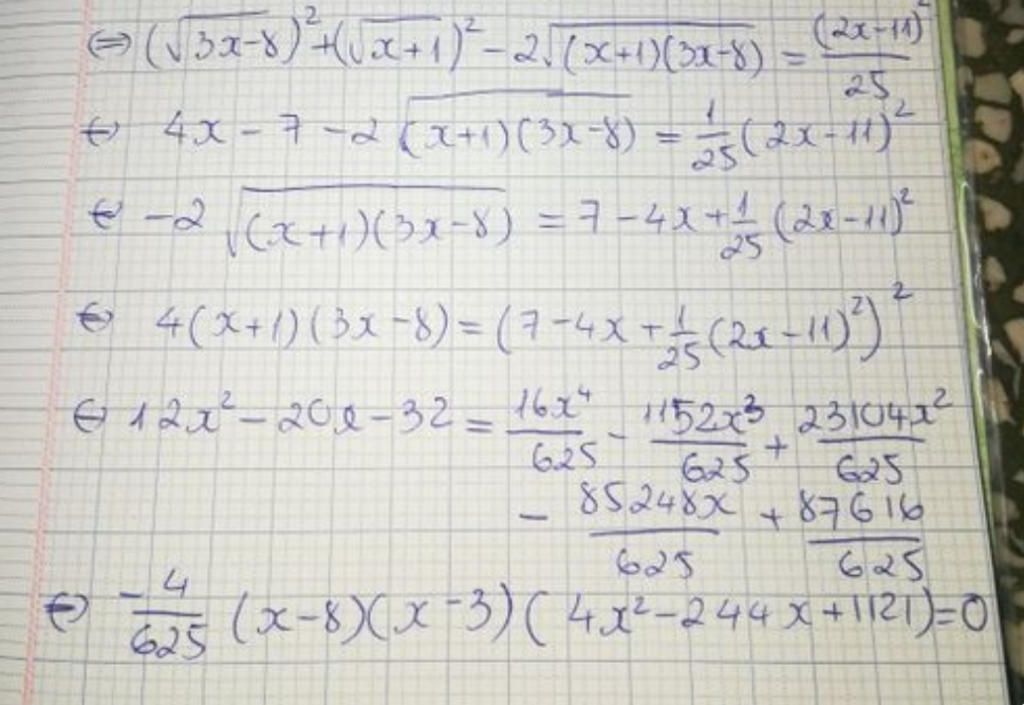 ⇔ (√3x-8)² + (√x+1)² - 2√(x+1)(3x-8) = (2x-11)²/25
⇔ 4x - 7 - 2√(x+1)(3x-8) = 1/25 (2x-11)²
⇔ -2√(x+1)(3x-8) = 7 - 4x + 1/25 (2x-11)²
⇔ 4(x+1)(3x-8) = (7 - 4x + 1/25 (2x-11)²)²
⇔ 12x² - 20x - 32 = 16x⁴/625 - 1152x³/625 + 23104x²/625
- 85248x/625 + 87616/625
⇔ -4/625 (x-8)(x-3)(4x² - 244x + 1121) = 0